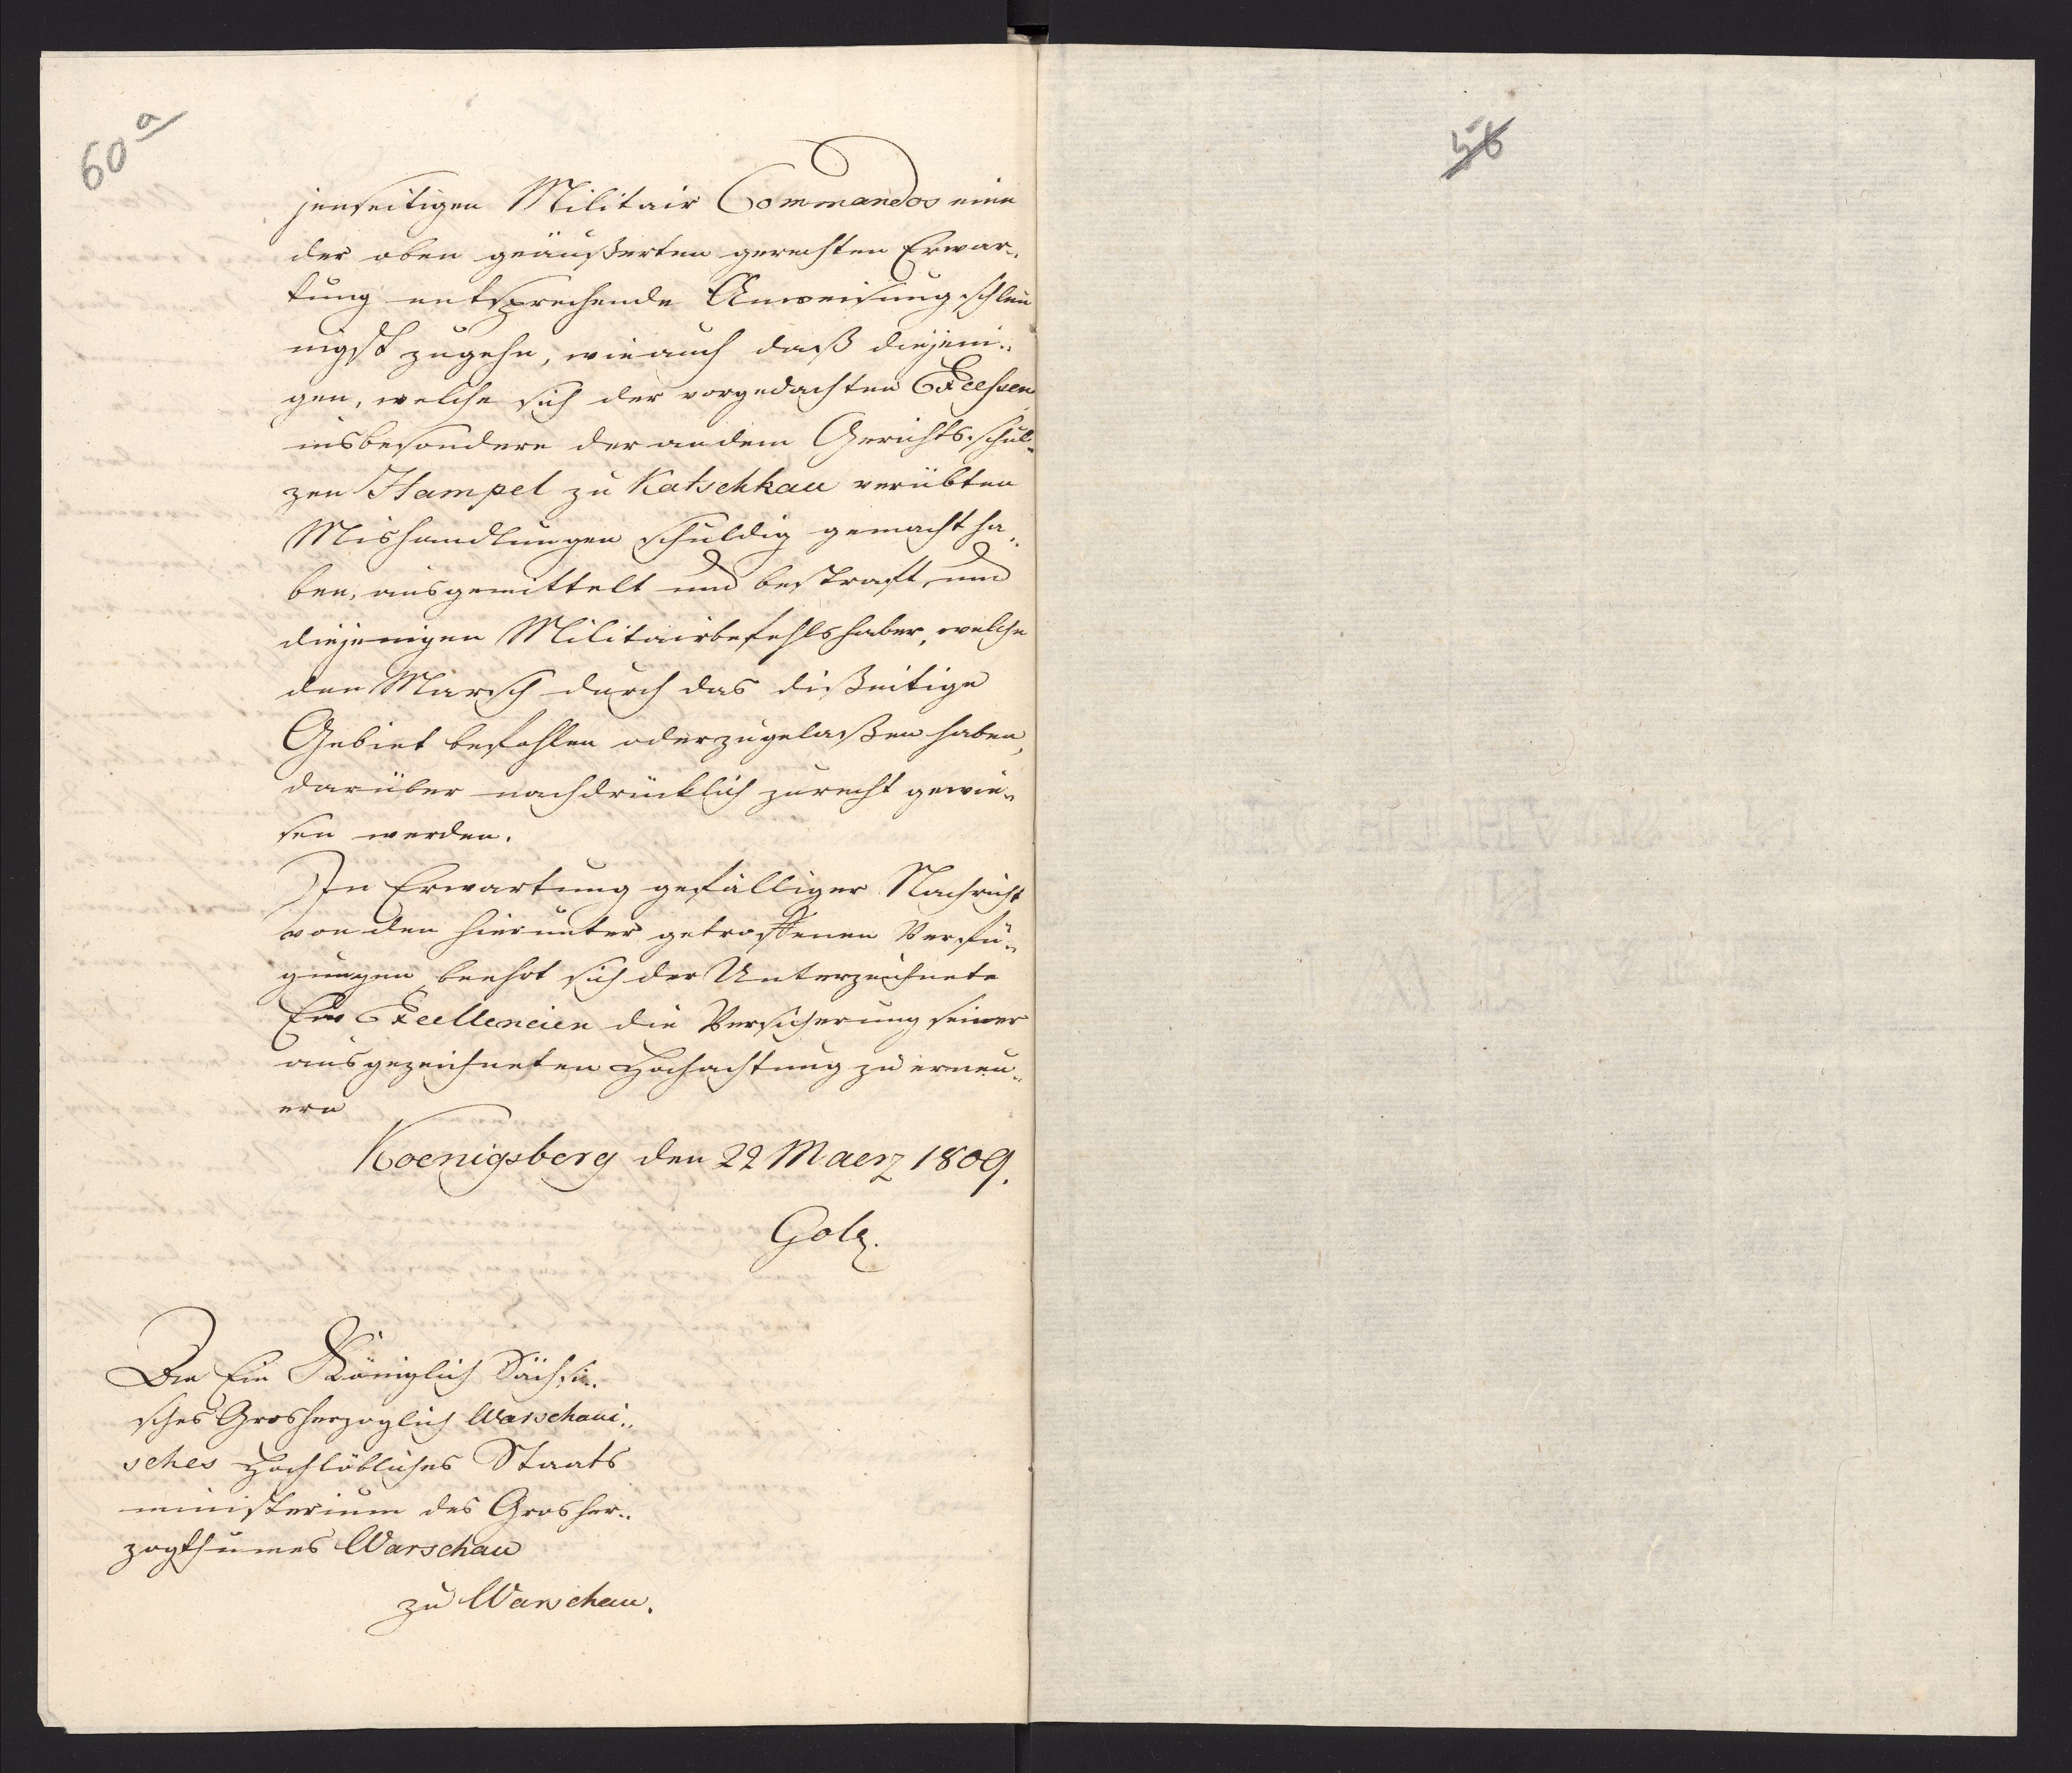 60a
jenseitigen Militair Commandos eine
der oben geäußerten gerechten Erwar-
tung entsprechende Anweisung schleu
nigst zugehe, wie auch daß diejeni-
gen, welche sich der vorgedachten Excessen
insbesondere der an dem Gerichts-schul-
zen Hampel zu Katschkau verübten
Mishandlungen schuldig gemacht ha-
ben, ausgemittelt und bestraft, und
diejenigen Militairbefehlshaber, welche
den Marsch durch das dißeitige
Gebiet befohlen oder zugelaßen haben,
darüber nachdrücklich zurecht gewie-
sen werden.
In Erwartung gefälliger Nachricht
von den hierunter getroffenen Verfü-
gungen, beehrt sich der Unterzeichnete
Ew Excellencien die Versicherung seiner
ausgezeichneten Hochachtung zu erneu-
ern
Koenigsberg den 22 Maerz 1809.
Golz.
An Ein Königlich Sächsi-
sches Grosherzoglich Warschaui-
sches Hochlöbliches Staats
ministerium des Grosher-
zogthumes Warschau
zu Warschau.
56